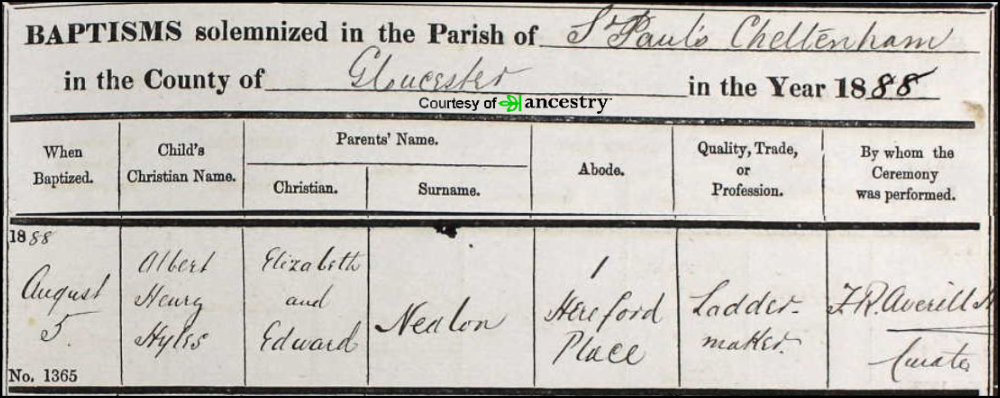 BAPTISMS solemnized in the Parish of St Paul's Cheltenham
in the County of Gloucester in the Year 1888
Courtesy of ancestry
When Baptized.
Child's Christian Name.
Parents' Name.
Christian.
Surname.
Abode.
Quality, Trade, or Profession.
By whom the Ceremony was performed.
1888
August
5.
No. 1365
Albert
Henry
Hyles
Elizabeth
and
Edward
Nealon
1
Hereford
Place
Ladder-
maker.
F.R. Averill
Curate